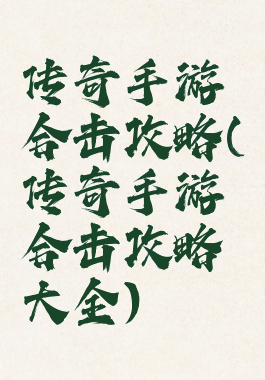 传奇手游
合击攻略(
传奇手游
合击攻略
大全)